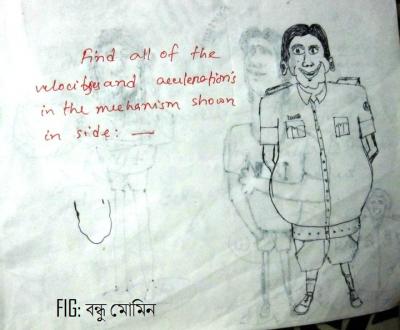 Find all of the
velocityes and accelenation's
in the mechanism shown
in side: —
FIG: বন্ধু মোমিন